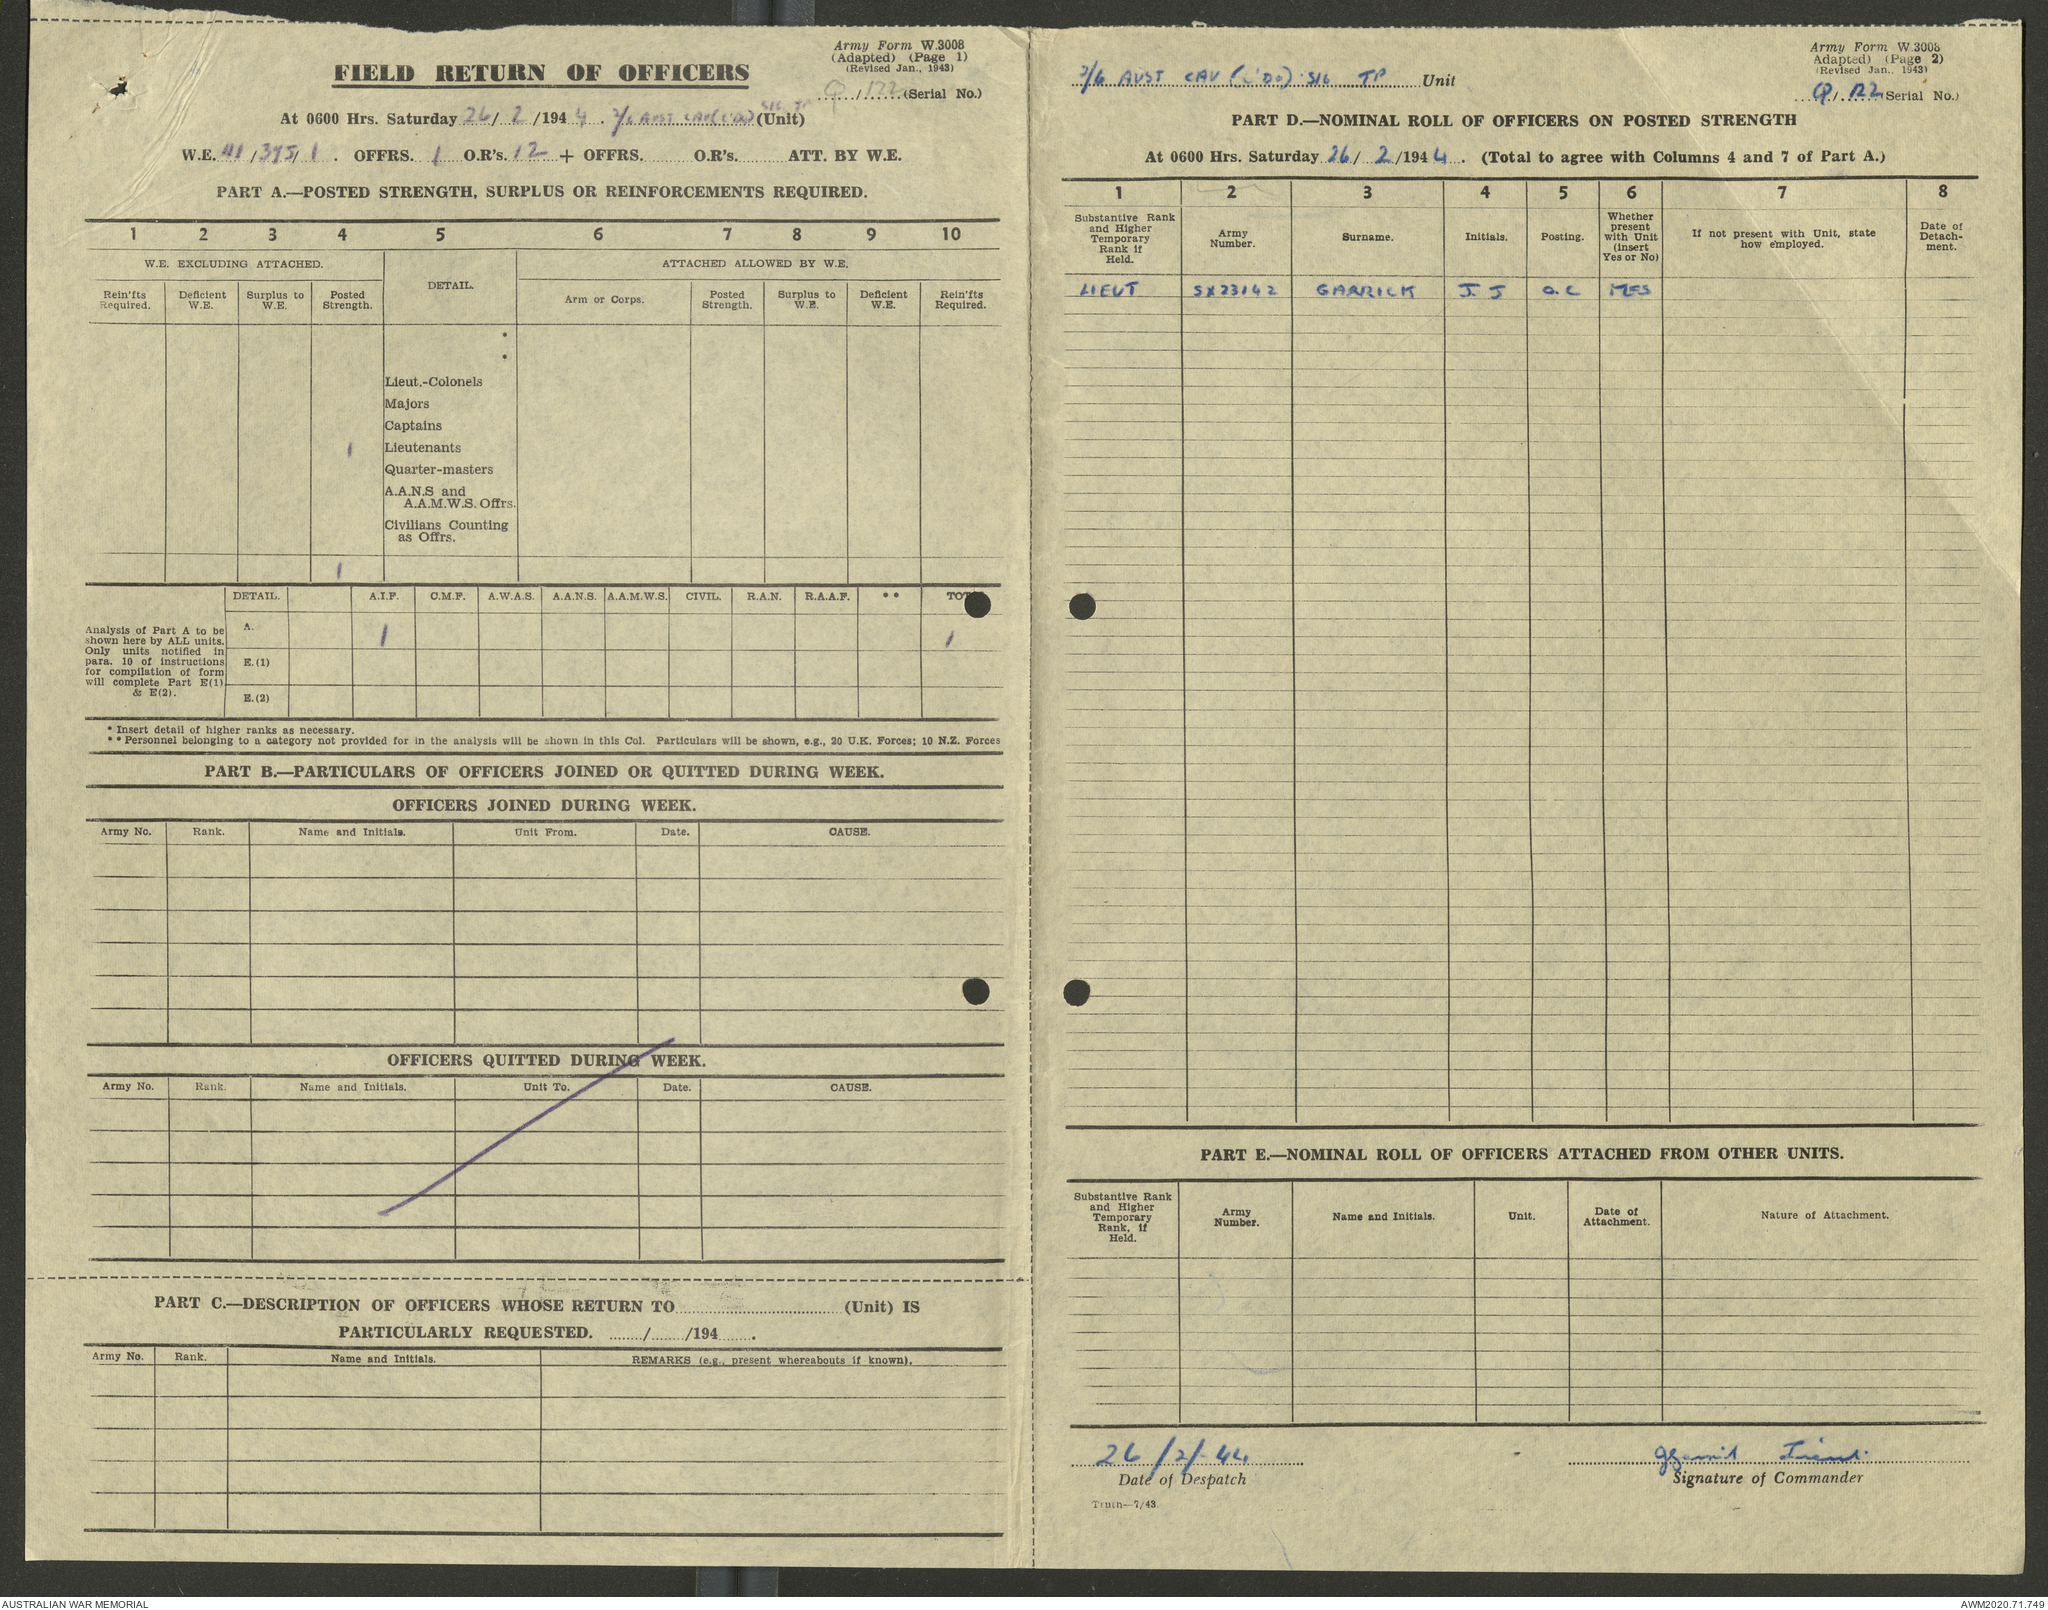 Army Form W.3008
(Adapted) (Page 1)
(Revised Jan., 1943)
FIELD RETURN OF OFFICERS
Q/122 (Serial No.)
At 0600 Hrs. Saturday 26/2/1944. 2/6 AUST CAV (C'DO) SIG TP (Unit)
W.E. /375/1. OFFRS. 1 O.R's. 12 + OFFRS. ...... O.R's. ...... ATT. BY W.E.
PART A.—POSTED STRENGTH, SURPLUS OR REINFORCEMENTS REQUIRED.
1 2 3 4 5 6 7 8 9 10
W.E. EXCLUDING ATTACHED. DETAIL. ATTACHED ALLOWED BY W.E.
Rein'fts Required. Deficient W.E. Surplus to W.E. Posted Strength. Arm or Corps. Posted Strength. Surplus to W.E. Deficient W.E. Rein'fts Required.
*
*
Lieut.-Colonels
Majors
Captains
1 Lieutenants
Quarter-masters
A.A.N.S and
A.A.M.W.S. Offrs.
Civilians Counting
as Offrs.
1
DETAIL. A.I.F. C.M.F. A.W.A.S. A.A.N.S. A.A.M.W.S. CIVIL. R.A.N. R.A.A.F. ** TOT
Analysis of Part A to be
shown here by ALL units.
Only units notified in
para. 10 of instructions
for compilation of form
will complete Part E(1)
& E(2).
A. 1 1
E.(1)
E.(2)
* Insert detail of higher ranks as necessary.
** Personnel belonging to a category not provided for in the analysis will be shown in this Col. Particulars will be shown, e.g., 20 U.K. Forces; 10 N.Z. Forces
PART B.—PARTICULARS OF OFFICERS JOINED OR QUITTED DURING WEEK.
OFFICERS JOINED DURING WEEK.
Army No. Rank. Name and Initials. Unit From. Date. CAUSE.
OFFICERS QUITTED DURING WEEK.
Army No. Rank. Name and Initials. Unit To. Date. CAUSE.
PART C.—DESCRIPTION OF OFFICERS WHOSE RETURN TO ............ (Unit) IS
PARTICULARLY REQUESTED. ....../....../194.......
Army No. Rank. Name and Initials. REMARKS (e.g., present whereabouts if known).
Army Form W.3008
Adapted) (Page 2)
(Revised Jan., 1943)
2/6 AUST CAV (C'DO) SIG TP Unit
Q/122 (Serial No.)
PART D.—NOMINAL ROLL OF OFFICERS ON POSTED STRENGTH
At 0600 Hrs. Saturday 26/2/1944. (Total to agree with Columns 4 and 7 of Part A.)
1 2 3 4 5 6 7 8
Substantive Rank and Higher Temporary Rank if Held. Army Number. Surname. Initials. Posting. Whether present with Unit (insert Yes or No) If not present with Unit, state how employed. Date of Detach-ment.
LIEUT SX23142 GARRICK J. J O.C YES
PART E.—NOMINAL ROLL OF OFFICERS ATTACHED FROM OTHER UNITS.
Substantive Rank and Higher Temporary Rank, if Held. Army Number. Name and Initials. Unit. Date of Attachment. Nature of Attachment.
26/2/44
Date of Despatch
Signature of Commander
Truth—7/43.
AUSTRALIAN WAR MEMORIAL
AWM2020.71.749